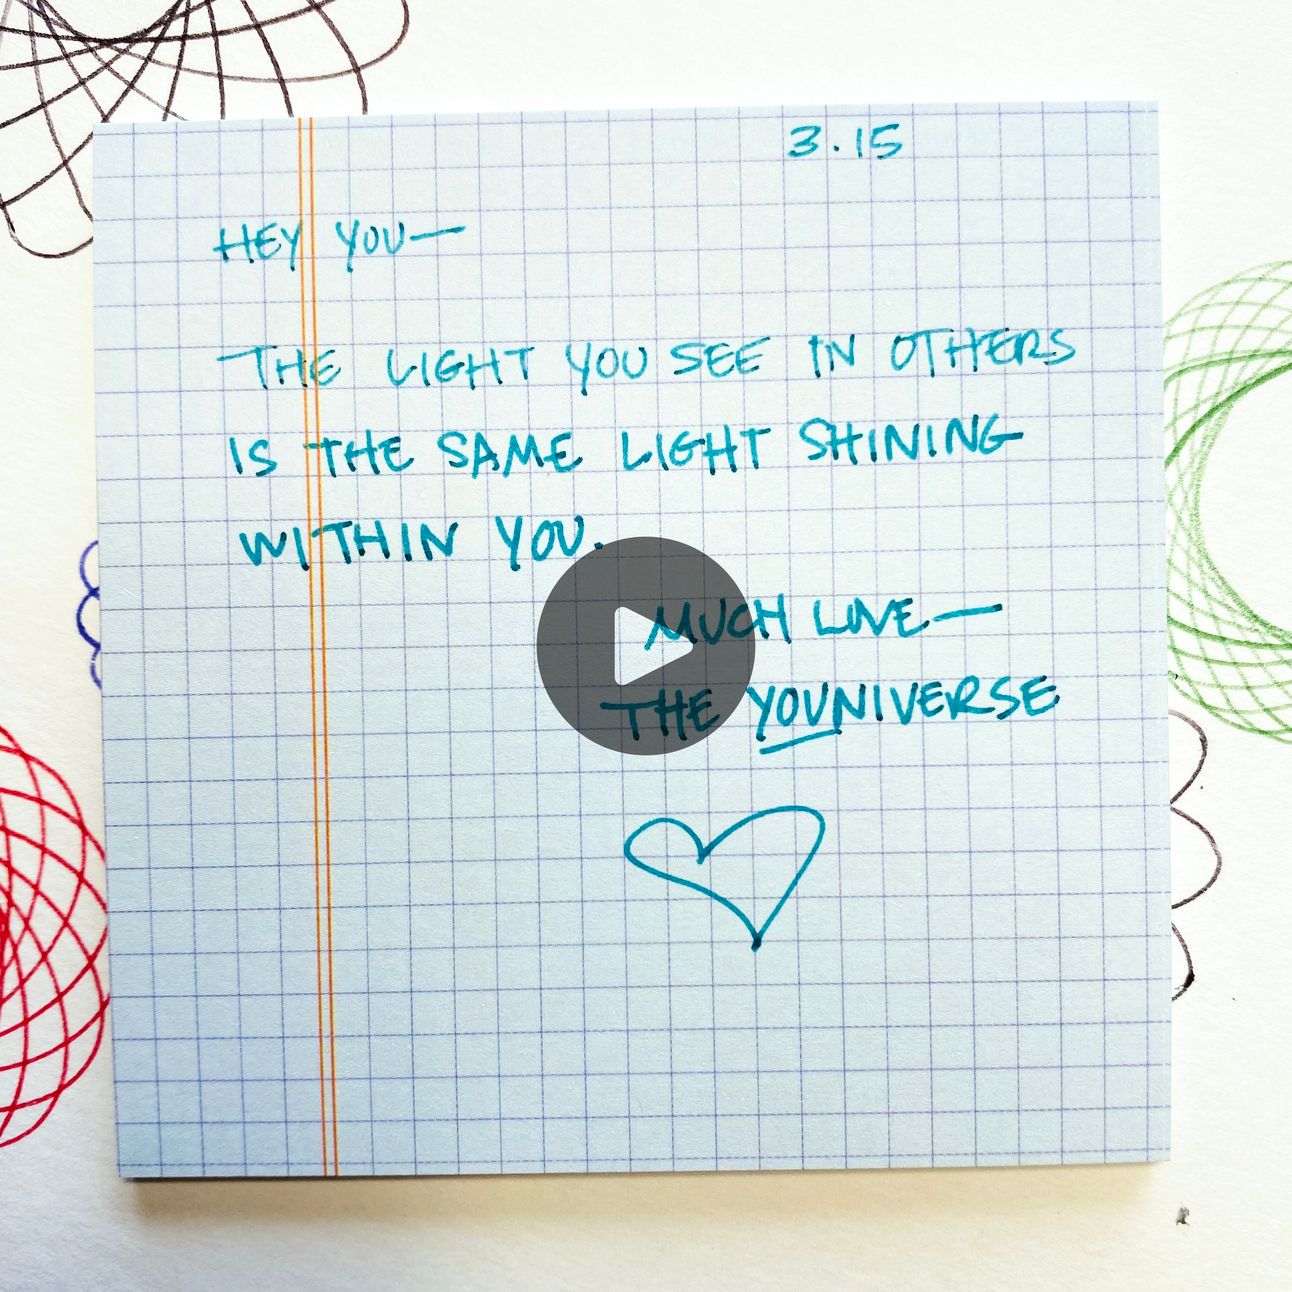 3.15
HEY YOU—
THE LIGHT YOU SEE IN OTHERS
IS THE SAME LIGHT SHINING
WITHIN YOU.
MUCH LOVE—
THE YOUNIVERSE